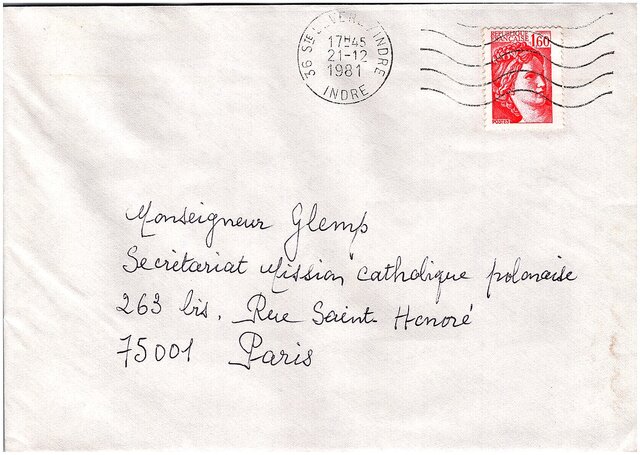 36 STE SEVERE S INDRE
17H45
21-12
1981
INDRE
REPUBLIQUE
FRANCAISE 1,60
Monseigneur Glemp
Secrétariat Mission catholique polonaise
263 bis. Rue Saint-Honoré
75001 Paris